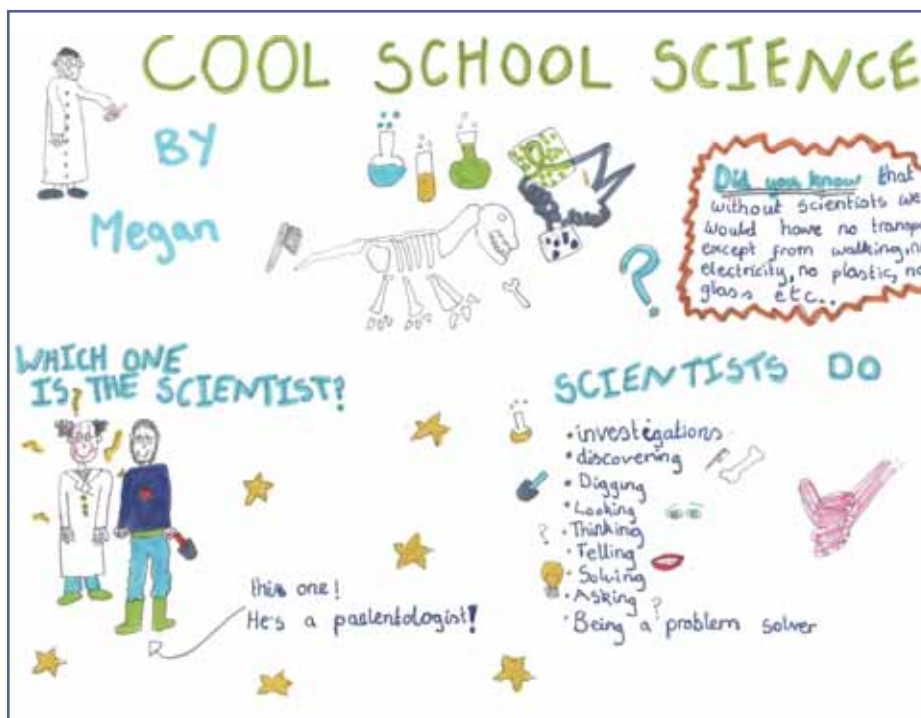 COOL SCHOOL SCIENCE
BY
Megan
Did you know that
without scientists we
would have no transp
except from walking, n
electricity, no plastic, no
glass etc..
?
WHICH ONE
IS THE SCIENTIST?
this one!
He's a paelentologist!
SCIENTISTS DO
• investigations
• discovering
• Digging
• Looking
• Thinking
• Telling
• Solving
• Asking
• Being a problem solver